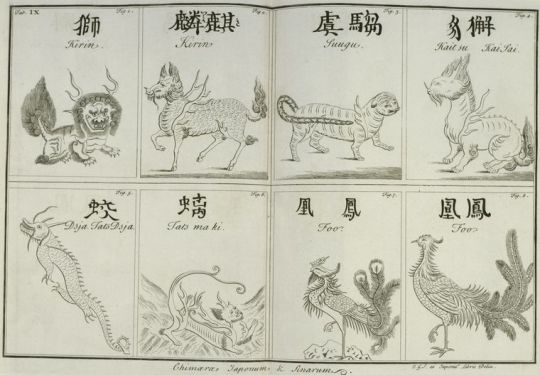 Tab. IX
Fig. 1.
獅
Kirin.
Fig. 2.
麟麒
Kirin
Fig. 3.
虞騶
Suugu.
Fig. 4.
豸獬
Kaitsu KaiSai.
Fig. 5.
蛟
Dsja. Tats Dsja.
Fig. 6.
螭
Tats ma ki.
凰鳳
Foo.
凰鳳
Foo.
Chimæræ Japonum & Sinarum.
ex Japonum Libris Delin.